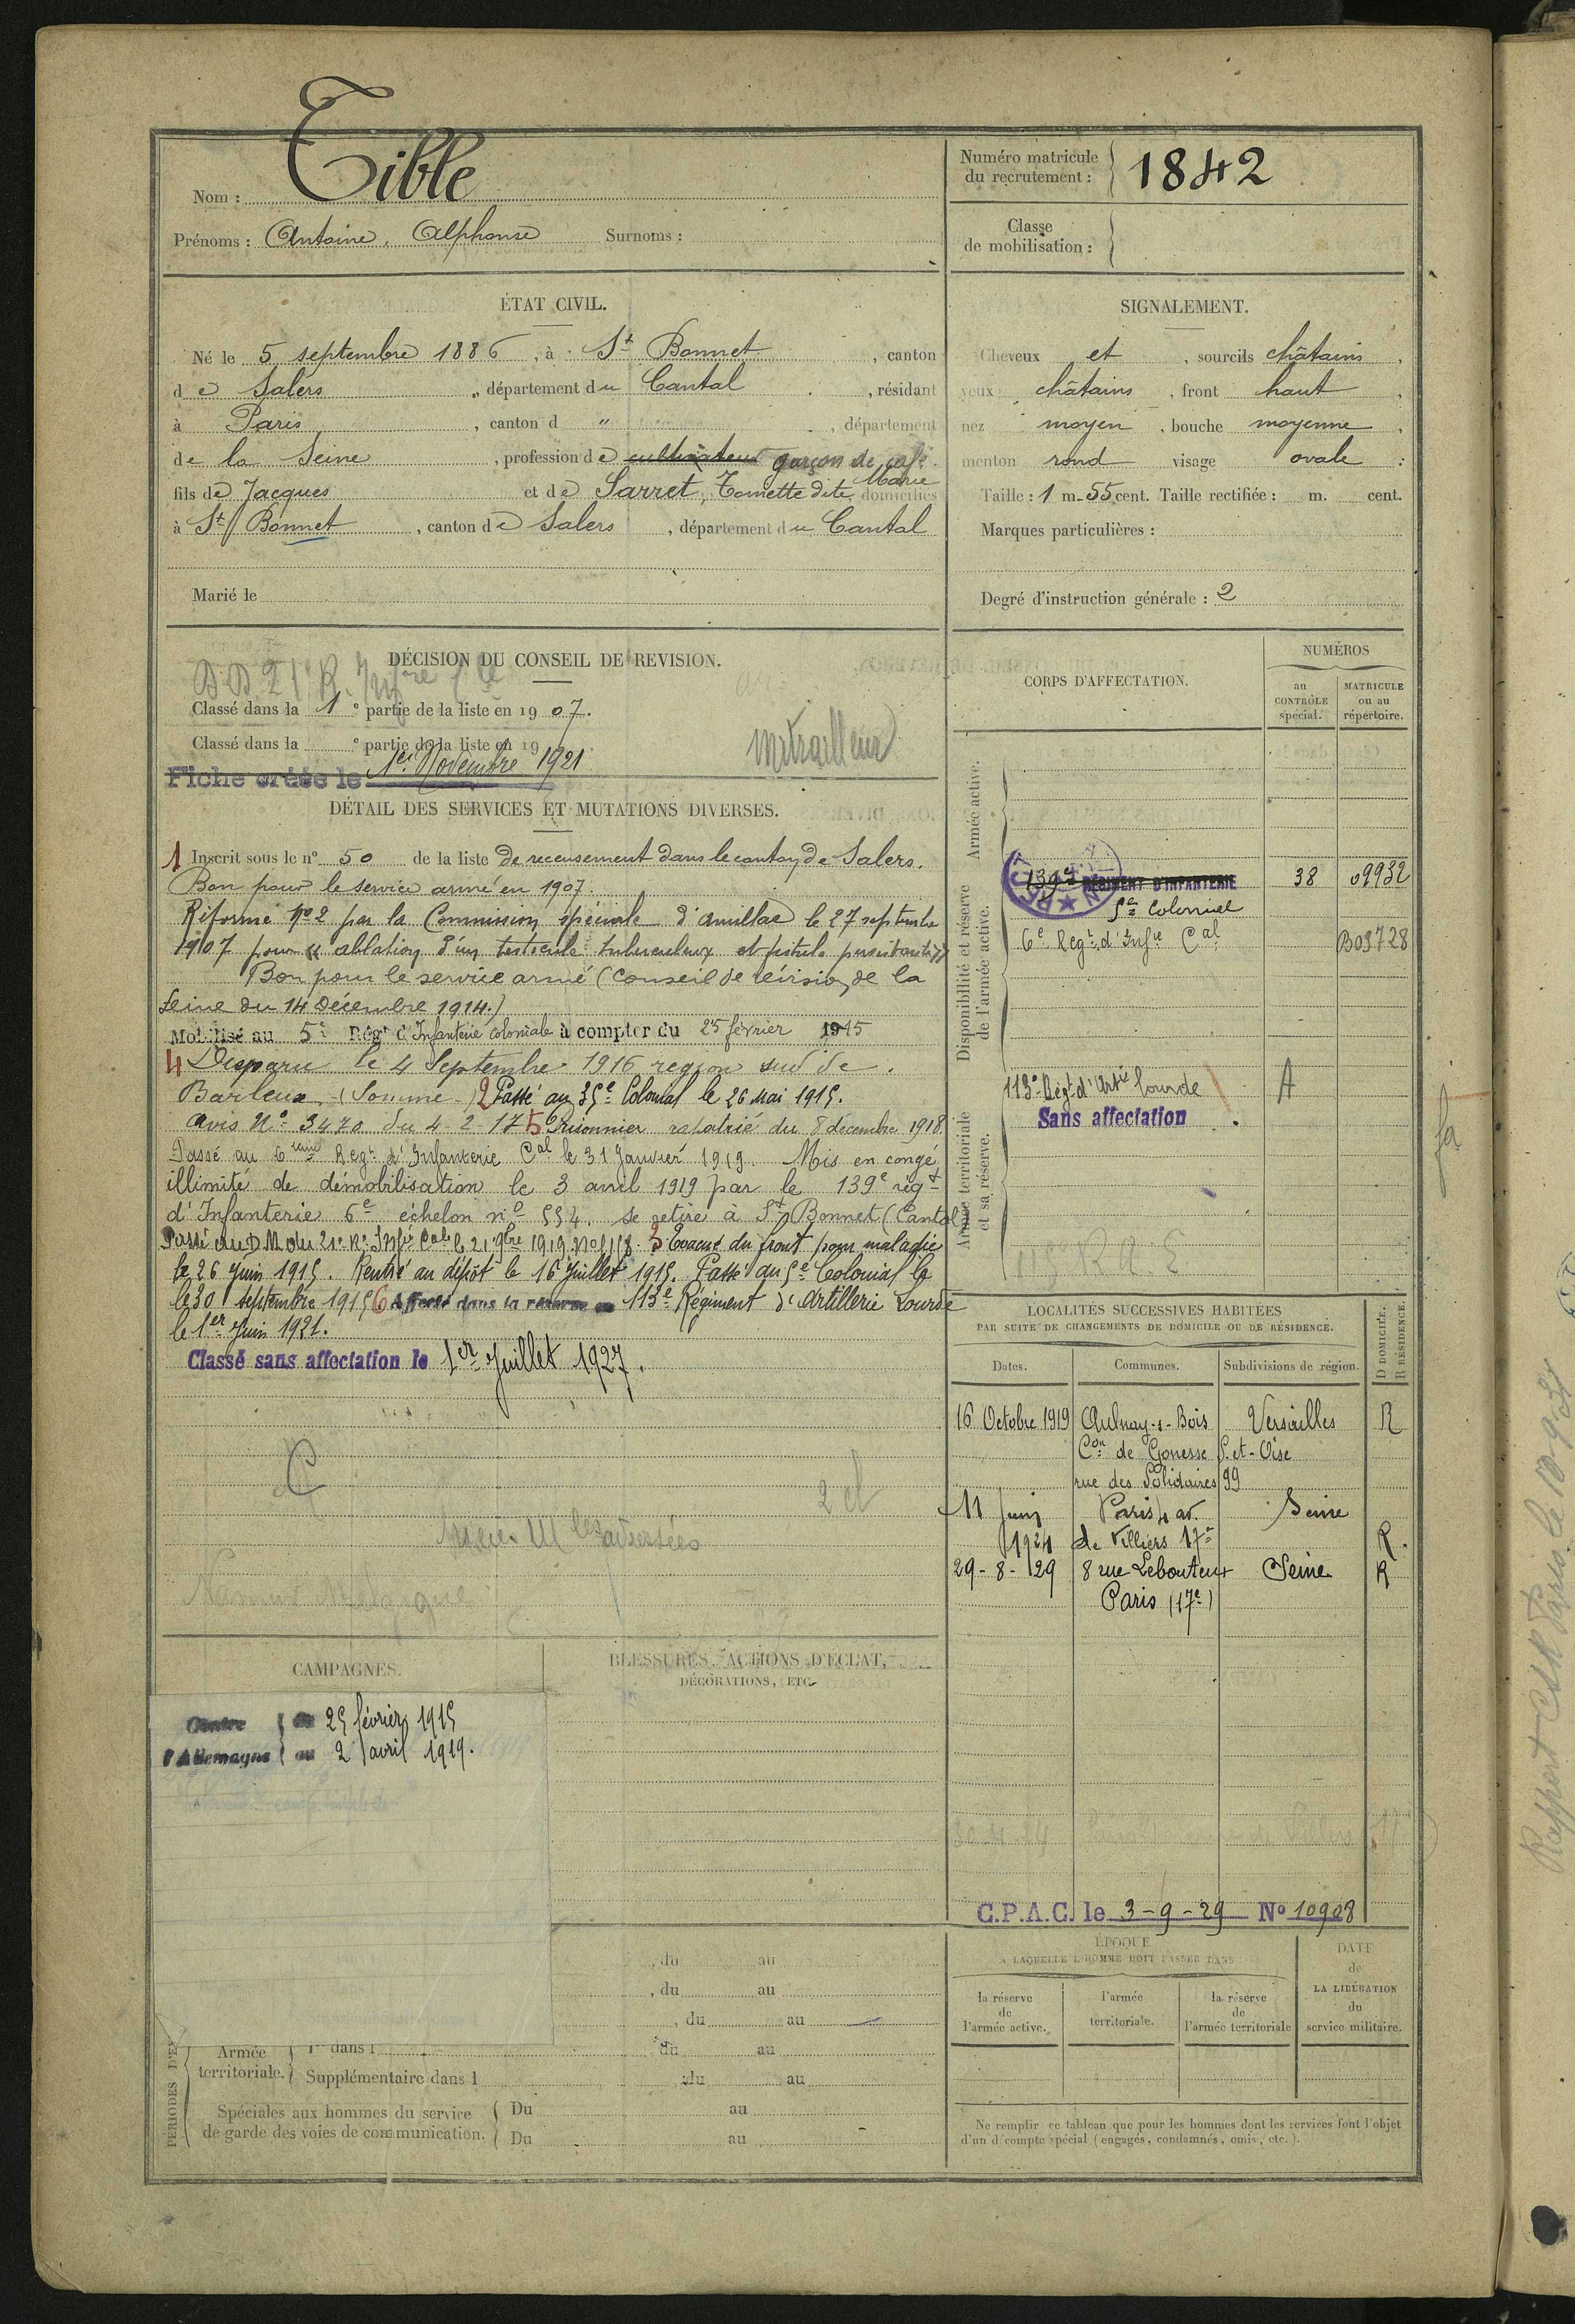 Nom : Tible
Prénoms : Antoine, Alphonse Surnoms :
Numéro matricule du recrutement : 1842
Classe de mobilisation :
ÉTAT CIVIL.
Né le 5 septembre 1886, à St Bonnet, canton
de Salers, département du Cantal, résidant
à Paris, canton d ", département
de la Seine, profession de cultivateur garçon de café.
fils de Jacques et de Sarret, Tomette dite Marie domiciliés
à St Bonnet, canton de Salers, département du Cantal
Marié le
SIGNALEMENT.
Cheveux et, sourcils châtains,
yeux châtains, front haut,
nez moyen, bouche moyenne,
menton rond visage ovale :
Taille : 1 m. 55 cent. Taille rectifiée : m. cent.
Marques particulières :
Degré d'instruction générale : 2
DÉCISION DU CONSEIL DE REVISION.
Classé dans la 1e partie de la liste en 1907.
Classé dans la e partie de la liste en 19
Fiche créée le 1er Novembre 1921
mitrailleur
DÉTAIL DES SERVICES ET MUTATIONS DIVERSES.
1 Inscrit sous le n° 50 de la liste de recensement dans le canton de Salers.
Bon pour le service armé en 1907.
Réformé No 2 par la Commission spéciale d'Aurillac le 27 septembre
1907 pour « ablation d'un testicule tuberculeux et fistule persistante »
Bon pour le service armé (Conseil de révision de la
Seine du 14 Décembre 1914.)
Mobilisé au 5e Régt d'Infanterie coloniale à compter du 25 février 1915
4 Disparu le 4 Septembre 1916 region sud de
Barleux (Somme) 2 Passé au 35e Colonial le 26 Mai 1915.
Avis No 3470 du 4-2-17 5 Prisonnier rapatrié du 8 décembre 1918.
Passé au 6eme Regt d'Infanterie Cal le 31 Janvier 1919. Mis en congé
illimité de démobilisation le 3 avril 1919 par le 139e régt
d'Infanterie 6e échelon no 554. Se retire à St Bonnet (Cantal)
Passé au D.M. du 21e Rt Infie Cale le 21 9bre 1919 No 118. 3 Evacué du front pour maladie
le 26 Juin 1915. Rentré au dépôt le 16 Juillet 1915. Passé au 5e Colonial le
le 30 septembre 1915 6 Affecté dans la réserve au 113e Régiment d'Artillerie Lourde
le 1er Juin 1921.
Classé sans affectation le 1er Juillet 1927.
2 cl
CORPS D'AFFECTATION.
NUMÉROS
au CONTRÔLE spécial.
MATRICULE ou au répertoire.
Armée active.
Disponibilité et réserve de l'armée active.
139e RÉGIMENT D'INFANTERIE 38 09932
5e Colonial
6e Regt d'Infie Cal B03728
Armée territoriale et sa réserve.
113e Régt d'Artie Lourde A
Sans affectation
LOCALITÉS SUCCESSIVES HABITÉES
PAR SUITE DE CHANGEMENTS DE DOMICILE OU DE RÉSIDENCE.
D DOMICILE.
R RÉSIDENCE.
Dates. Communes. Subdivisions de région.
16 Octobre 1919 Aulnay-s-Bois Versailles R
Con de Gonesse S.et-Oise
rue des Solidaires 99
11 Juin Paris 4 av. Seine
1924 de Villiers 17e R.
29-8-29 8 rue Lebouteux Seine R
Paris (17e)
C.P.A.C. le 3-9-29 No 10908
CAMPAGNES.
Contre l'Allemagne
du 25 février 1915
au 2 avril 1919.
BLESSURES, ACTIONS D'ÉCLAT,
DÉCORATIONS, ETC.
, du au
, du au
, du au
du au
du au
PÉRIODES D'EX
Armée territoriale.
1re dans l
Supplémentaire dans l
Spéciales aux hommes du service de garde des voies de communication.
Du au
Du au
ÉPOQUE
À LAQUELLE L'HOMME DOIT PASSER DANS
la réserve de l'armée active.
l'armée territoriale.
la réserve de l'armée territoriale
DATE de LA LIBÉRATION du service militaire.
Ne remplir ce tableau que pour les hommes dont les services font l'objet
d'un décompte spécial (engagés, condamnés, omis, etc.).